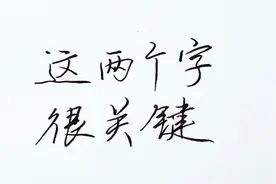 这两个字
很关键